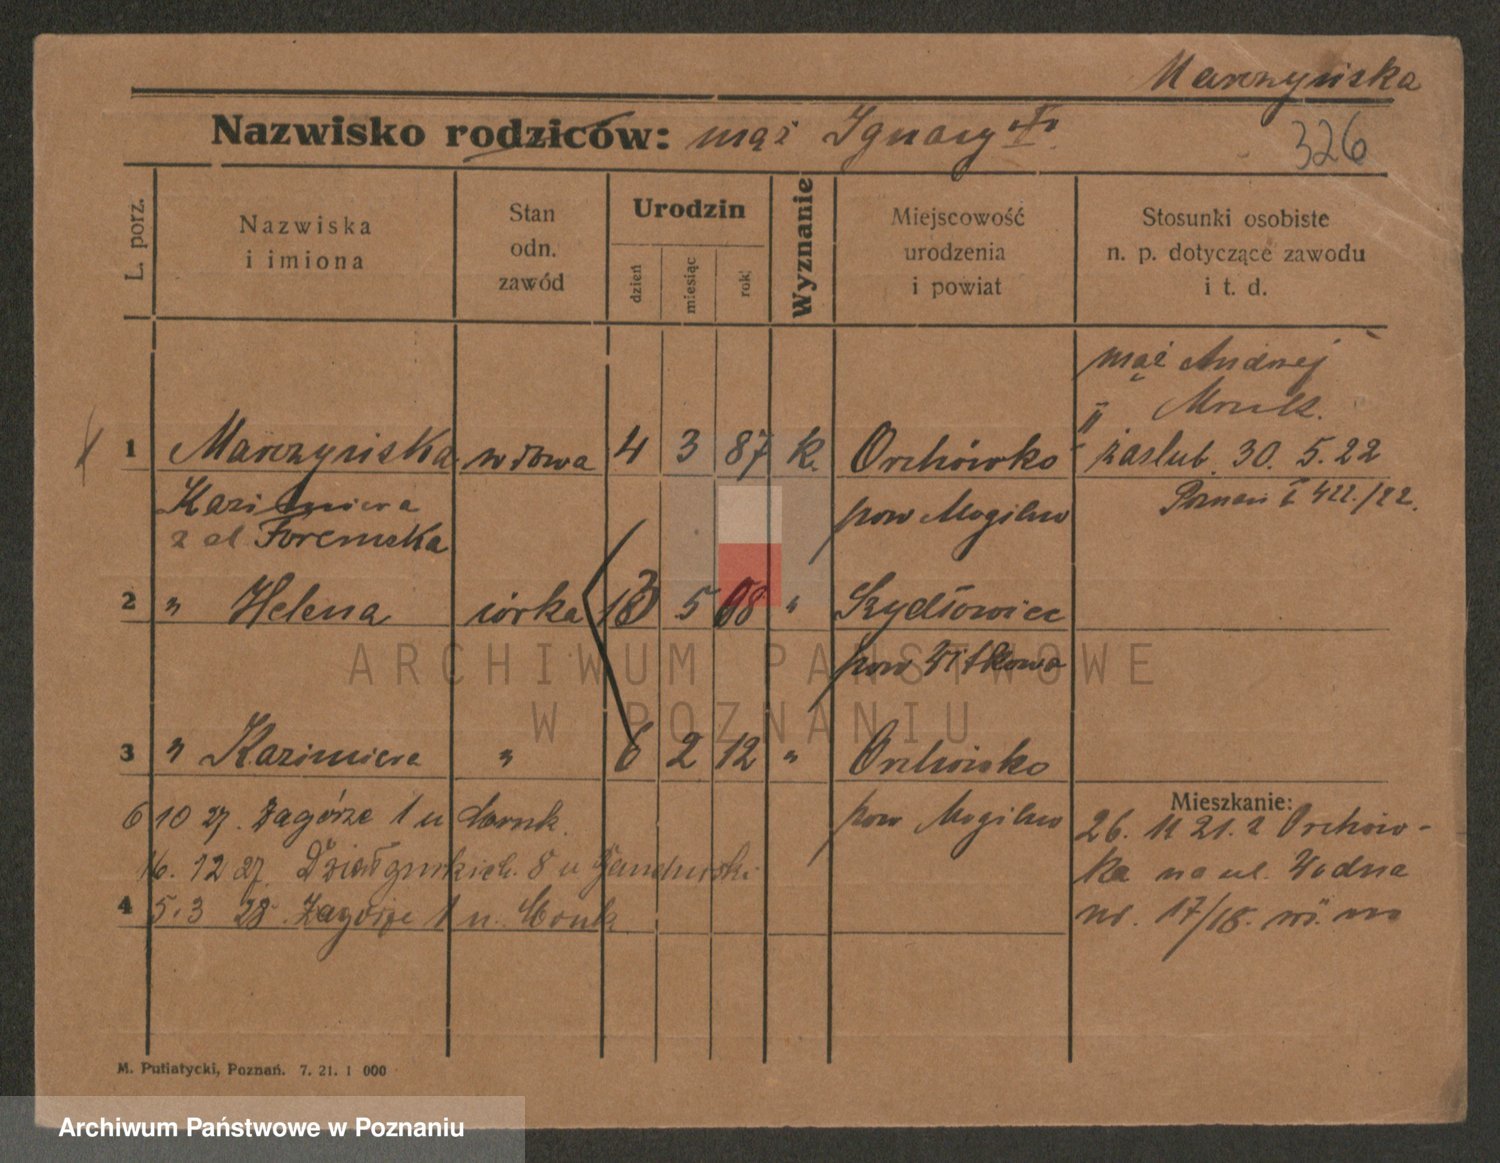 Marczyńska
Nazwisko rodziców: mąż Ignacy
326
L. porz.
Nazwiska
i imiona
Stan
odn.
zawód
Urodzin
dzień
miesiąc
rok
Wyznanie
Miejscowość
urodzenia
i powiat
Stosunki osobiste
n. p. dotyczące zawodu
i t. d.
mąż Andrzej
" Mruk.
1 Marczyńska wdowa 4 3 87 k. Orchówko zaslub. 30. 5. 22
Kazimiera pow Mogilno Poznań I 422./22.
z d Foremska
2 " Helena córka 5 08 " Szydłowiec
pow Witkowo
3 " Kazimiera " 6 2 12 " Orchówko
pow Mogilno
Mieszkanie:
26. 11 21. z Orchów-
ka na ul. Wodna
nr. 17/18.
6 10 27. Zagórze 1 u Mruk.
16. 12 27. 8 u
4 5. 3 28. Zagórze 1 u. Mruk
M. Putiatycki, Poznań. 7. 21. 1 000
ARCHIWUM PAŃSTWOWE
W POZNANIU
Archiwum Państwowe w Poznaniu